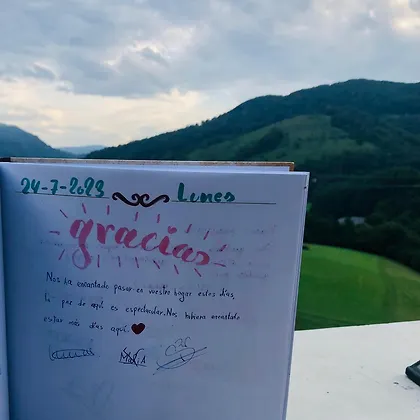 24-7-2023 Lunes
gracias
Nos ha encantado pasar en vuestro hogar estos días,
la paz de aquí es espectacular. Nos hubiera encantado
estar más días aquí.
MARÍA